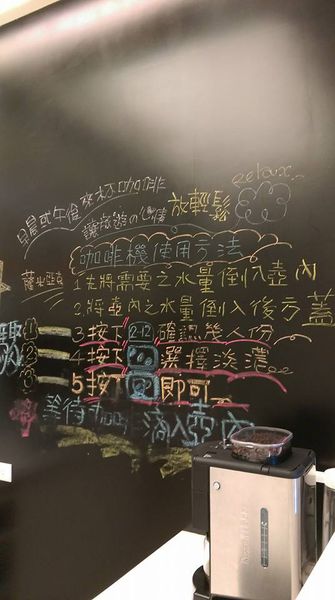 relax...
早晨或午後來杯咖啡
讓旅遊の心情
放輕鬆
咖啡機使用方法
1.先將需要之水量倒入壺內
2.將壺內之水量倒入後方蓋
3 按下 2-12 確認幾人份
4 按下 選擇淡濃
5 按下 即可
等待咖啡滴入壺內